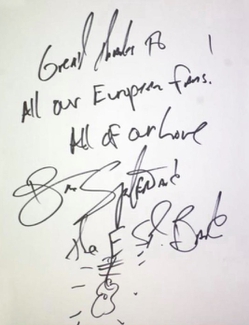 Great thanks to !
All our European fans.
All of our Love
Bruce Springsteen
the E St. Band